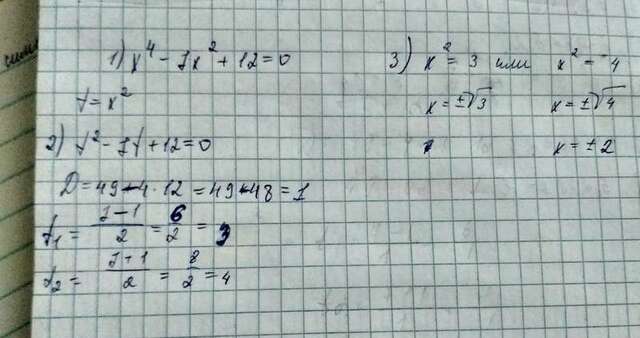 1) x⁴ - 7x² + 12 = 0
t = x²
2) t² - 7t + 12 = 0
D = 49 - 4 · 12 = 49 - 48 = 1
t₁ = (7 - 1)/2 = 6/2 = 3
t₂ = (7 + 1)/2 = 8/2 = 4
3) x² = 3 или x² = 4
x = ±√3 x = ±√4
x = ±2